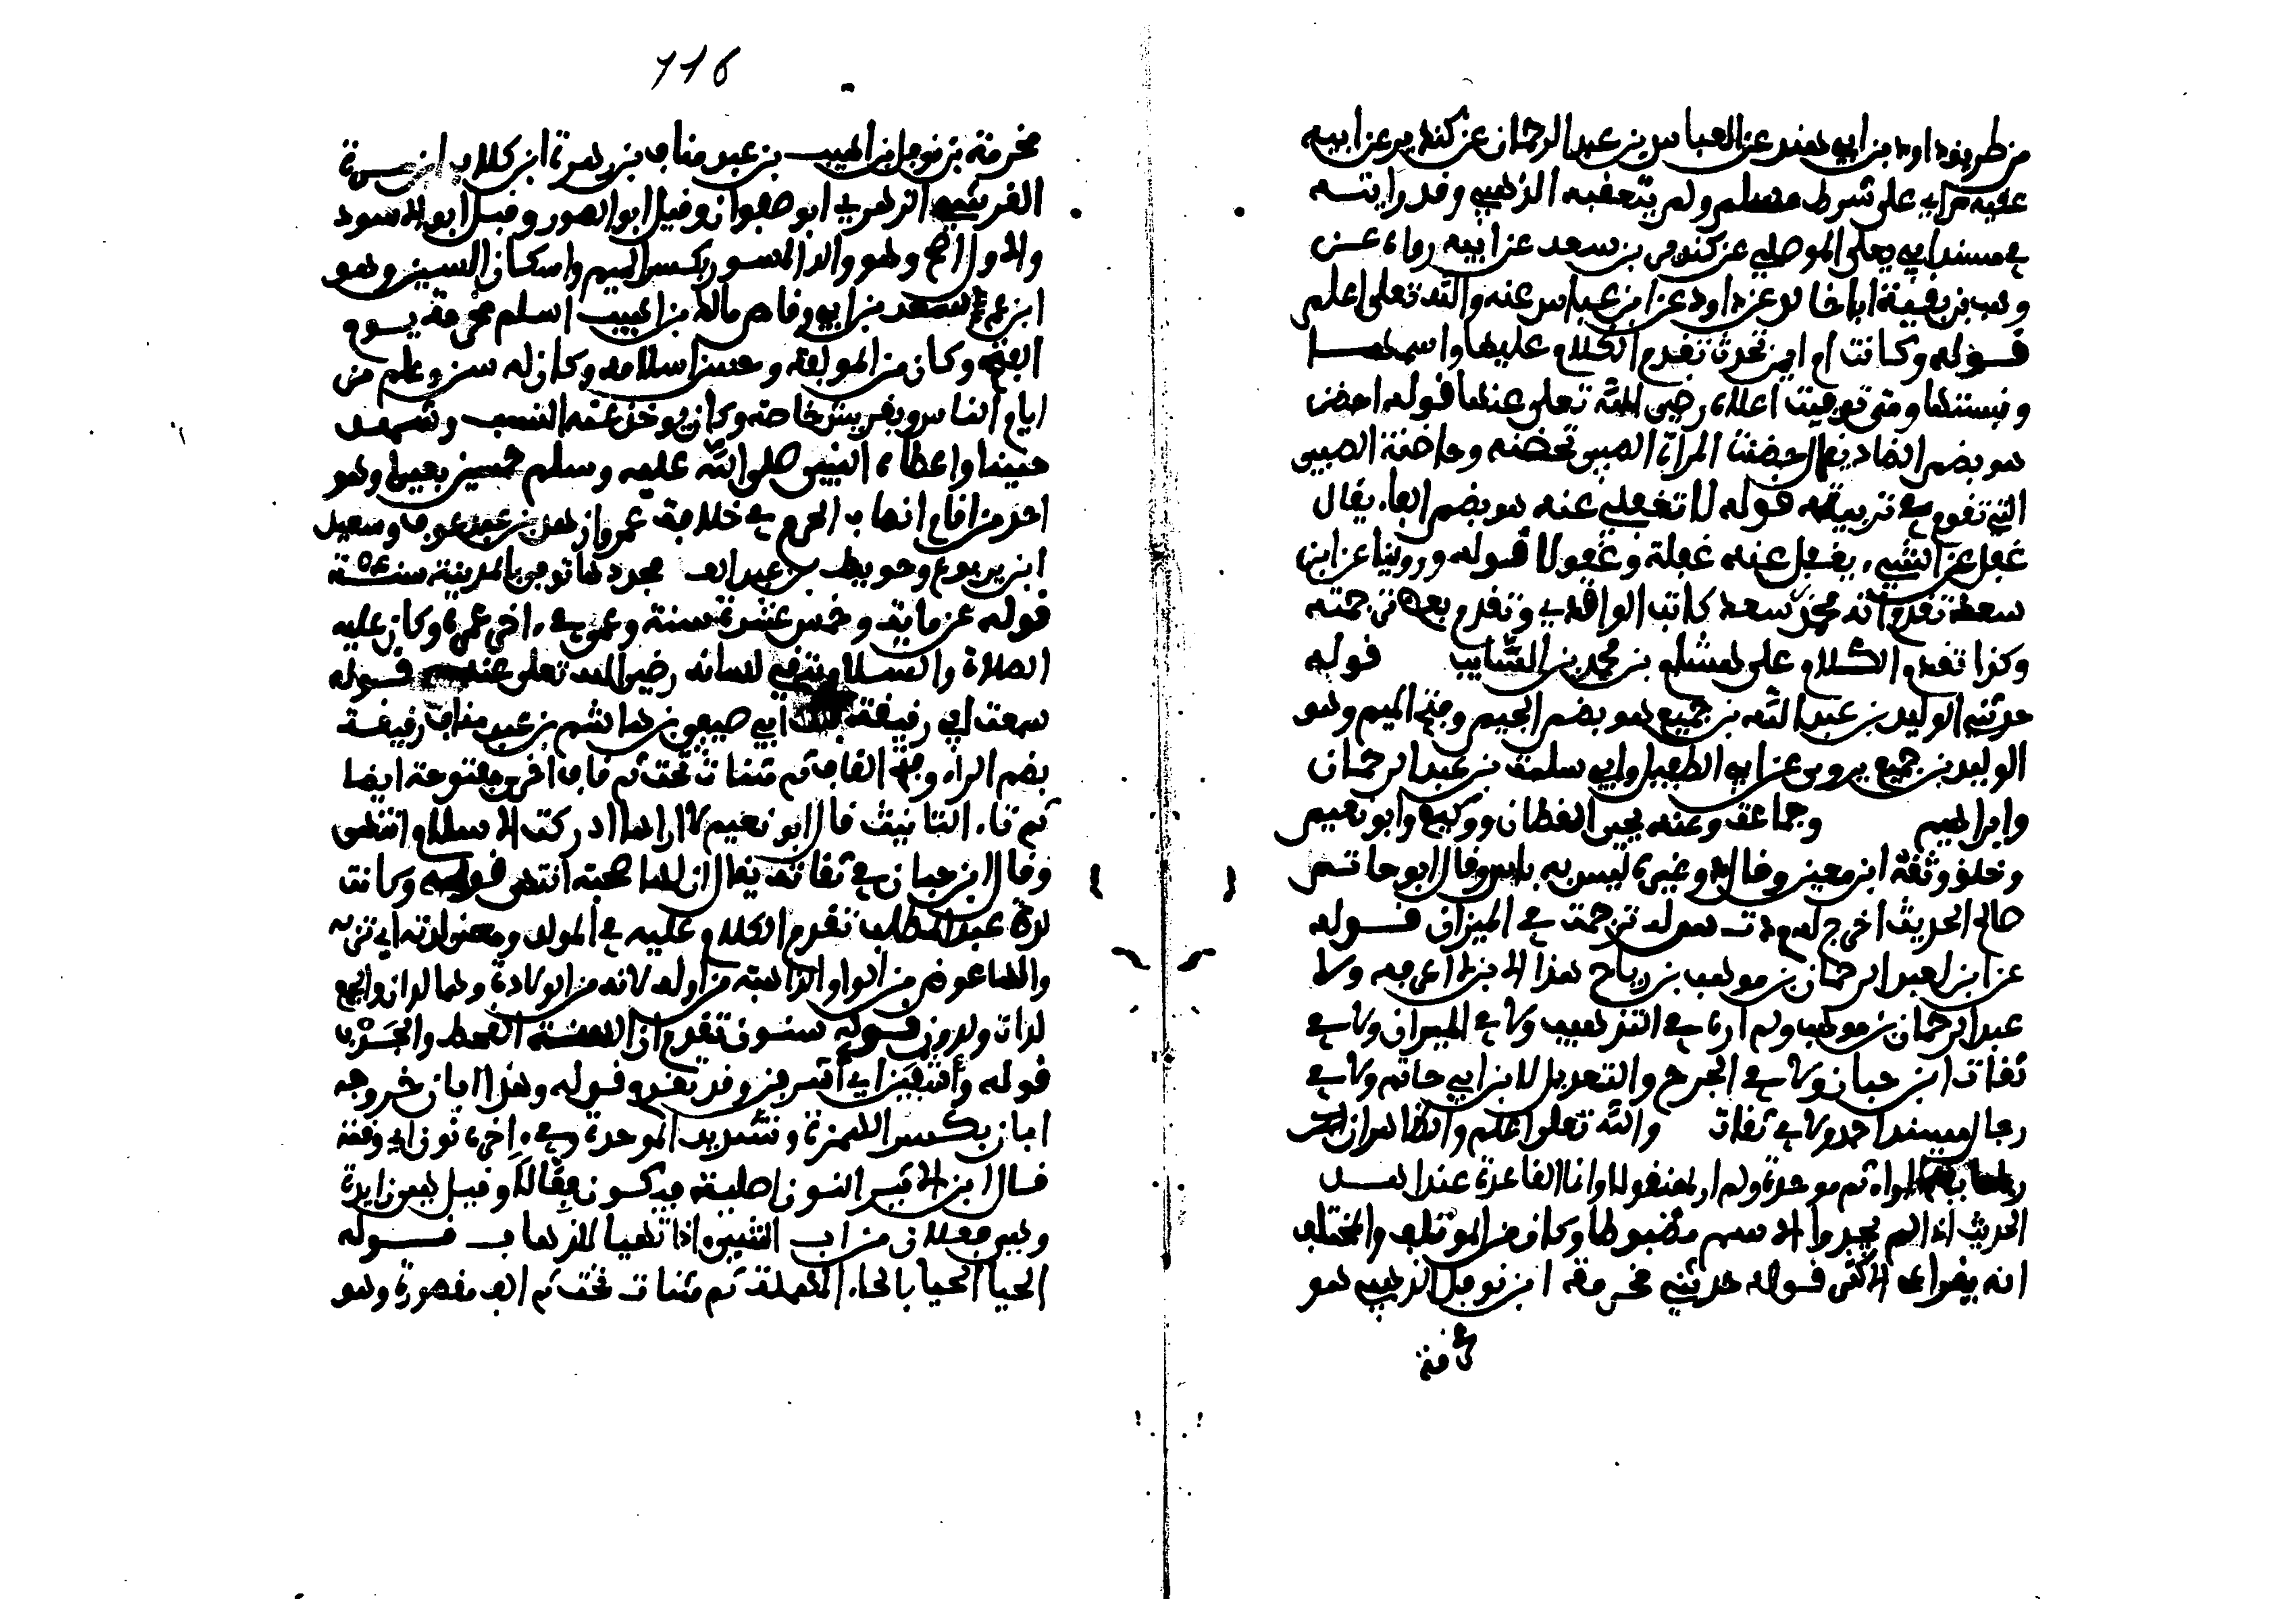 من طريق داود بن ابي هند عن العباس بن عبد الرحمان عن كندير عن ابيه
على شرط مسلم ولم يتعقبه الذهبي وقد رايته
في مسند ابي يعلى الموصلي عن كندير بن سعد عن ابيه رواه عن
وهب بن بقية انا خالد عن داود عن ابن عباس عنه والله تعلى اعلم
قوله وكانت ام ايمن تحدث تقدم الكلام عليها واسمها
ونسبتها ومتى توفيت اعلاه رضي الله تعلى عنها قوله احضن
هو بضم الضاد يقال حضنت المراة الصبي تحضنه وحاضنة الصبي
التي تقوم في تربيته قوله لا تغفلي عنه هو بضم الفاء يقال
غفل عن الشيء يغفل عنه غفلة وغفولا قوله وروينا عن ابن
سعد تقدم انه محمد بن سعد كاتب الواقدي وتقدم بعض ترجمته
وكذا تقدم الكلام على هشام بن محمد بن السايب قوله
حدثني الوليد بن عبد الله بن جميع هو بضم الجيم وفتح الميم وهو
الوليد بن جميع يروي عن ابي الطفيل وابي سلمة بن عبد الرحمان
وابراهيم وجماعة وعنه يحيى القطان ووكيع وابو نعيم
وخلق وثقه ابن معين وقال وغيره ليس به باس وقال ابو حاتم
صالح الحديث اخرج له م د ت س وله ترجمة في الميزان قوله
عن ابن لعبد الرحمان بن موهب بن رباح هذا الابن لا اعرفه ولا
عبد الرحمان بن موهب ولم اره في التذهيب ولا في الميزان ولا في
ثقات ابن حبان ولا في الجرح والتعديل لابن ابي حاتم ولا في
رجال مسند احمد ولا في ثقات والله تعلى اعلم والظاهر ان
ثم موحدة ولم ار منقولا وانا القاعدة عند اهل
الحديث اذا لم يجدوا الاسم مضبوطا وكان من الموتلف والمختلف
انه يقرا على الاكثر قوله حدثني مخرمة ابن نوفل الزهري هو
مخرمة
116
مخرمة بن نوفل بن اهيب بن عبد مناف بن زهرة ابن كلاب ابن مرة
القرشي الزهري ابو صفوان وقيل ابو المسور وقيل ابو الاسود
والاول اصح وهو والد المسور بكسر الميم واسكان السين وهو
ابن عم سعد بن ابي وقاص مالك بن اهيب اسلم مخرمة يوم
الفتح وكان من المولفة وحسن اسلامه وكان له سن وعلم من
ايام الناس وبقريش خاصة وكان يوخذ عنه النسب وشهد
حنينا واعطاه النبي صلى الله عليه وسلم خمسين بعيرا وهو
احد من اقام انصاب الحرم في خلافة عمر وازهر بن عبد عوف وسعيد
ابن يربوع وحويطب بن عبد العزى فجددوها توفي بالمدينة سنة
قوله عن ماية وخمس عشرة سنة وعمي في اخر عمره وكان عليه
الصلاة والسلام يتقي لسانه رضي الله تعلى عنه قوله
سمعت ابي رقيقة بنت ابي صيفي بن هاشم بن عبد مناف رقيقة
بضم الراء وفتح القاف ثم مثناة تحت ثم قاف اخرى مفتوحة ايضا
ثم تاء التانيث قال ابو نعيم لا اراها ادركت الاسلام انتهى
وقال ابن حبان في ثقاته يقال ان لها صحبة انتهى قوله وكانت
لدة عبد المطلب تقدم الكلام عليه في المولد ومعنى لدته اي تربه
والهاء عوض من الواو الذاهبة من اوله لانه من الولادة وهما لدان والجمع
لدات ولدون قوله سنون تقدم ان السنة القحط والجدب
وقد تقدم قوله وهذا ابان خروجه
ابان بكسر الهمزة وتشديد الموحدة وفي اخره نون اي وقته
قال ابن الاثير النون اصلية فيكون فعالا وقيل هي زايدة
وهو فعلان من اب الشيء اذا تهيا للذهاب قوله
الحيا الحيا بالحاء المهملة ثم مثناة تحت ثم الف مقصورة وهو